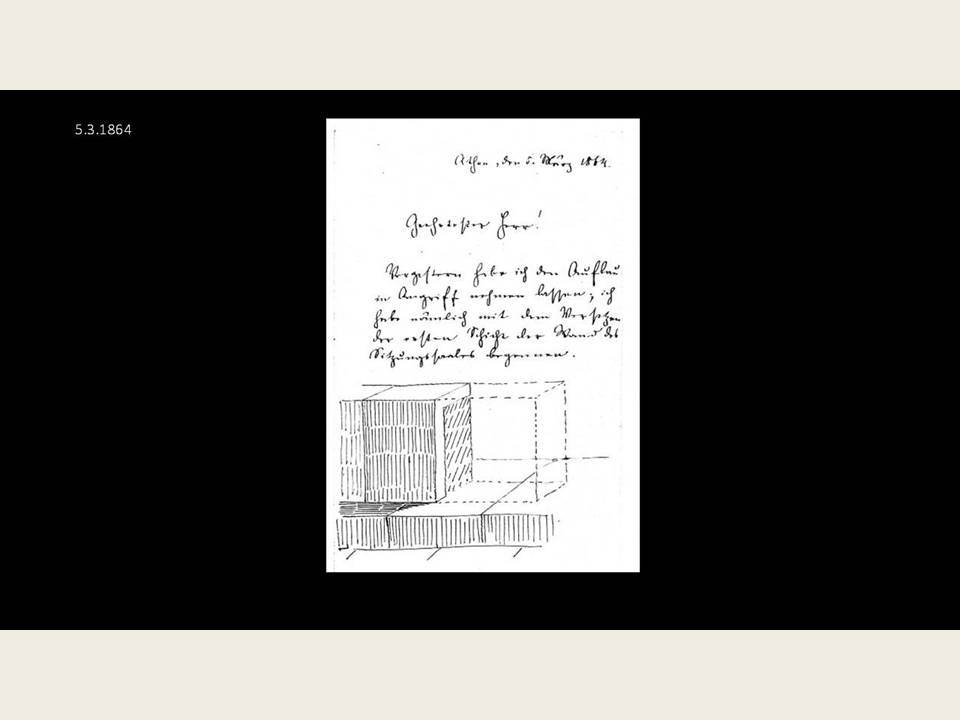 5.3.1864
Athen, den 5. März 1864.
Geehrtester Herr!
Vorgestern habe ich den Aufbau
in Angriff nehmen lassen; ich
habe nämlich mit dem Versetzen
der ersten Schicht der Wand des
Sitzungssaales begonnen.